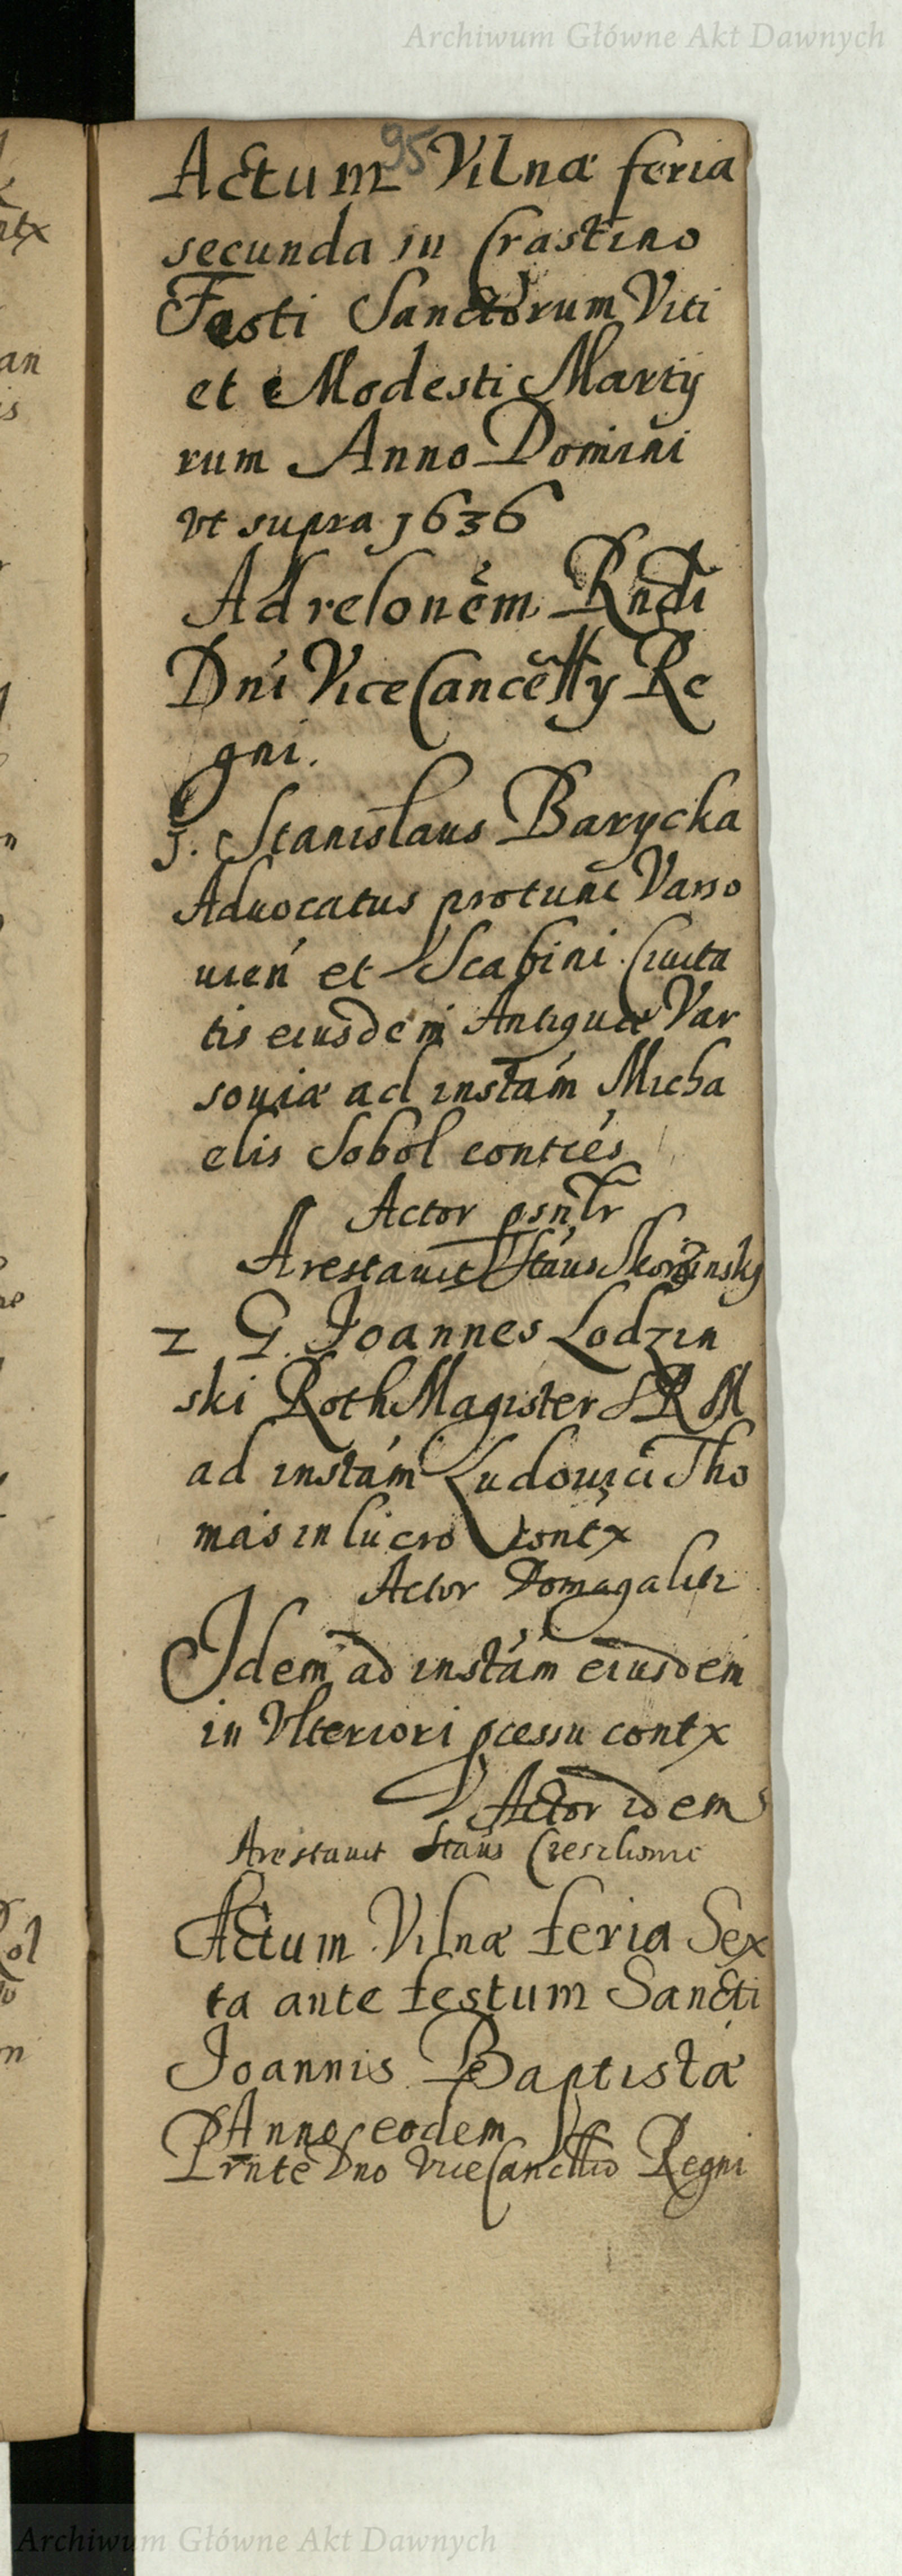 Archiwum Główne Akt Dawnych
95
Actum Vilnæ feria
secunda in Crastino
Festi Sanctorum Viti
et Modesti Martÿ
rum Anno Domini
vt supra 1636
Ad relonem Rndi
Dni ViceCancelly Re
gni.
1. Stanislaus Barycka
Aduocatus protunc Varso
uien et Scabini Ciuita
tis eiusdem Antiquæ Var
souiæ ad instam Micha
elis Sobol conties
Actor psnlr
Arestauit Staus
2 G. Joannes Lodzin
ski RothMagister S R M
ad instam Ludouici Tho
mais in lucro contx
Actor Domagalicz
Idem ad instam eiusdem
in Vlteriori pcessu contx
Actor idem
Arestauit Staus
Actum Vilnæ feria Sex
ta ante festum Sancti
Joannis Baptistæ
Anno eodem
Prnte Dno ViceCancllio Regni
Archiwum Główne Akt Dawnych